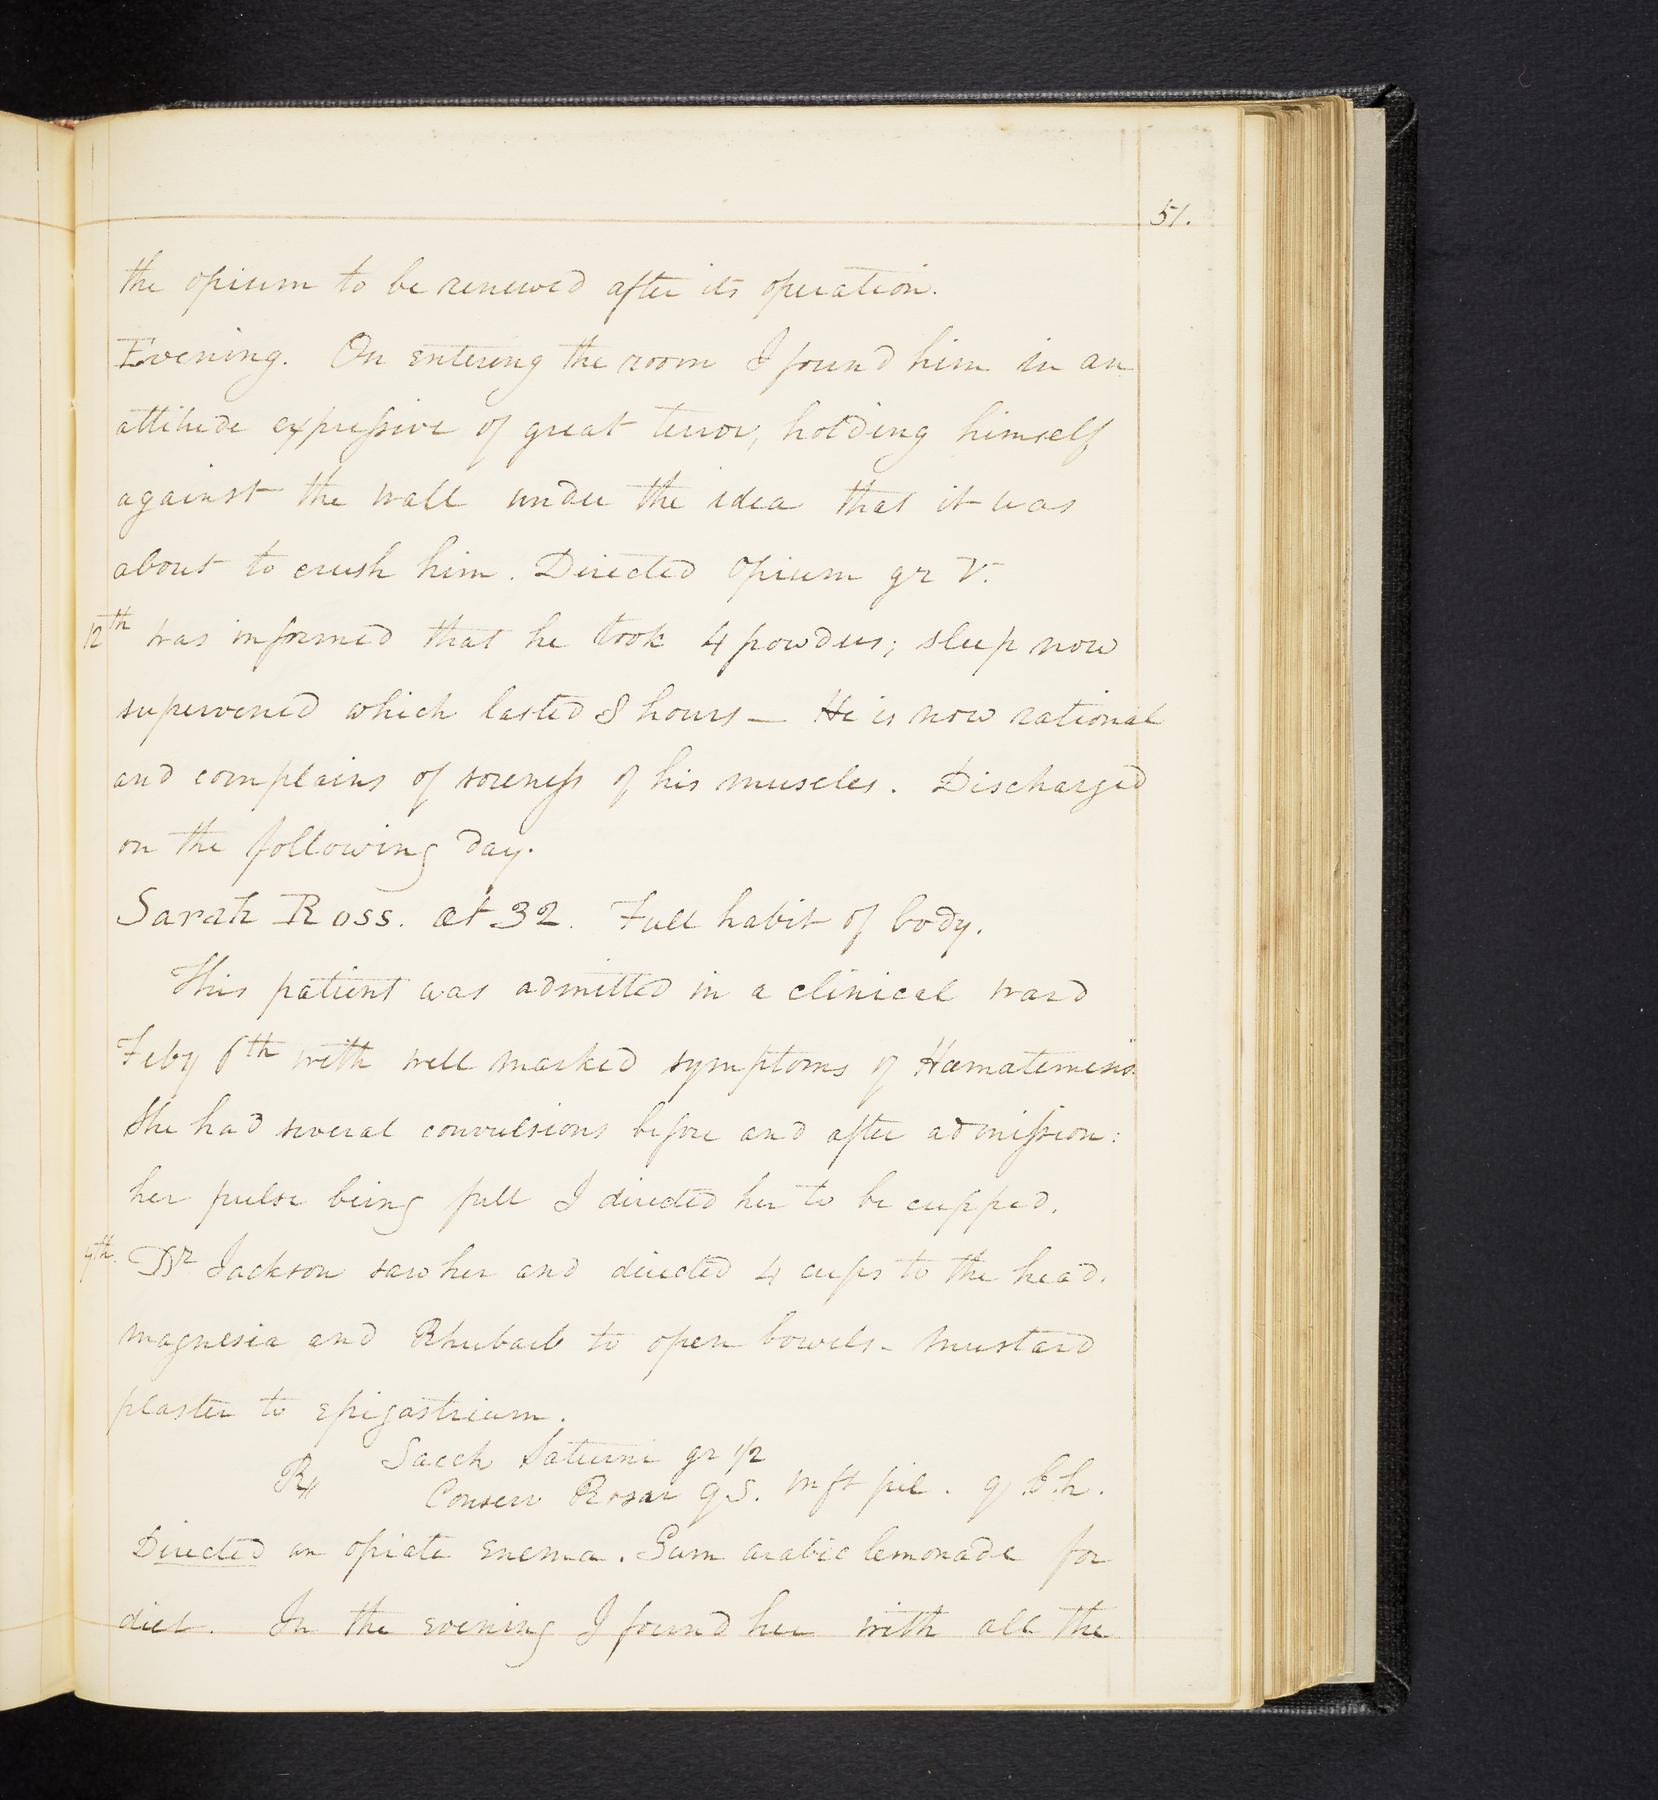 51.
the opium to be renewed after its operation.
Evening. On entering the room I found him in an
attitude expressive of great terror, holding himself
against the wall under the idea that it was
about to crush him. Directed Opium gr V.
12th was informed that he took 4 powders; sleep now
supervened which lasted 8 hours — He is now rational
and complains of soreness of his muscles. Discharged
on the following day.
Sarah Ross. æt 32. Full habit of body.
This patient was admitted in a clinical ward
Feby 6th with well marked symptoms of Hæmatemesis.
She had several convulsions before and after admission:
her pulse being full I directed her to be cupped.
7th. Dr Jackson saw her and directed 4 cups to the head.
magnesia and Rhubarb to open bowels - mustard
plaster to epigastrium.
Sacch Saturni gr 1/2
R Conserv Rosar q S. m ft pil. q h.
Directed an opiate enema. Gum arabic lemonade for
diet. In the evening I found her with all the